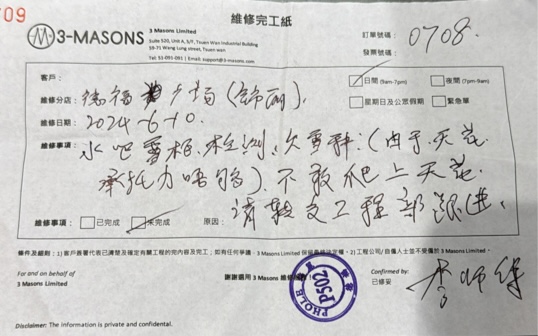 09
維修完工紙
3-MASONS
3 Masons Limited
Suite 520, Unit A, 5/F, Tsuen Wan Industrial Building
59-71 Wang Lung street, Tsuen wan
Tel: 55-091-091 | Email: support@3-masons.com
訂單號碼： 0708
發票號碼：
客戶：
日間 (9am-7pm)
夜間 (7pm-9am)
維修分店： 德福廣場
星期日及公眾假期
緊急單
維修日期： 2024-6-10.
維修事項： 水吧 檢測、 (由于天花
承托力唔夠)、不敢爬上天花.
請轉交工程部跟進.
維修事項：
已完成
未完成
原因：
條件及細則：1)客戶簽署代表已清楚及確定有關工程的完內容及完工；如有任何爭議，3-Masons Limited 保留最終決定權。2)工程公司/自僱人士並不受僱於 3-Masons Limited。
For and on behalf of
3 Masons Limited
謝謝選用 3 Masons 維修
P502
Confirmed by:
已修妥
李師傅
Disclaimer: The information is private and confidential.